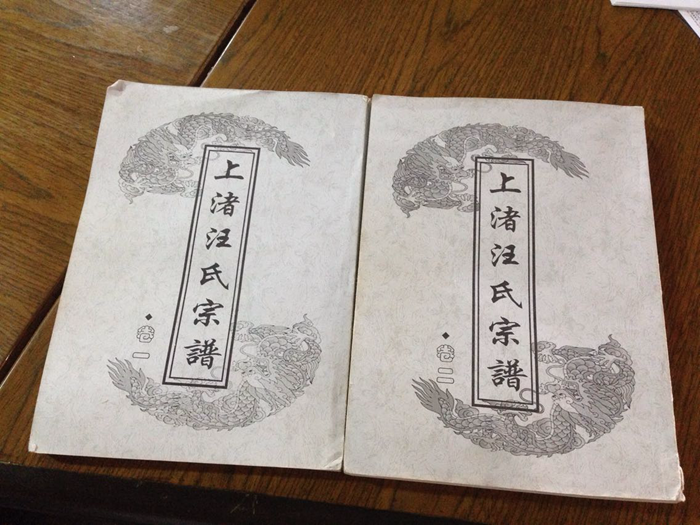 上渚汪氏宗譜
卷一
上渚汪氏宗譜
卷二